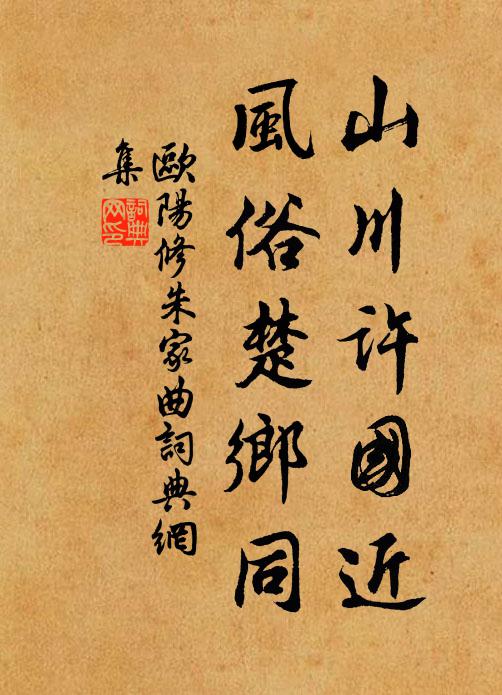 山川許國近
風俗楚鄉同
歐陽修朱家曲詞典網
集
詞典
网印